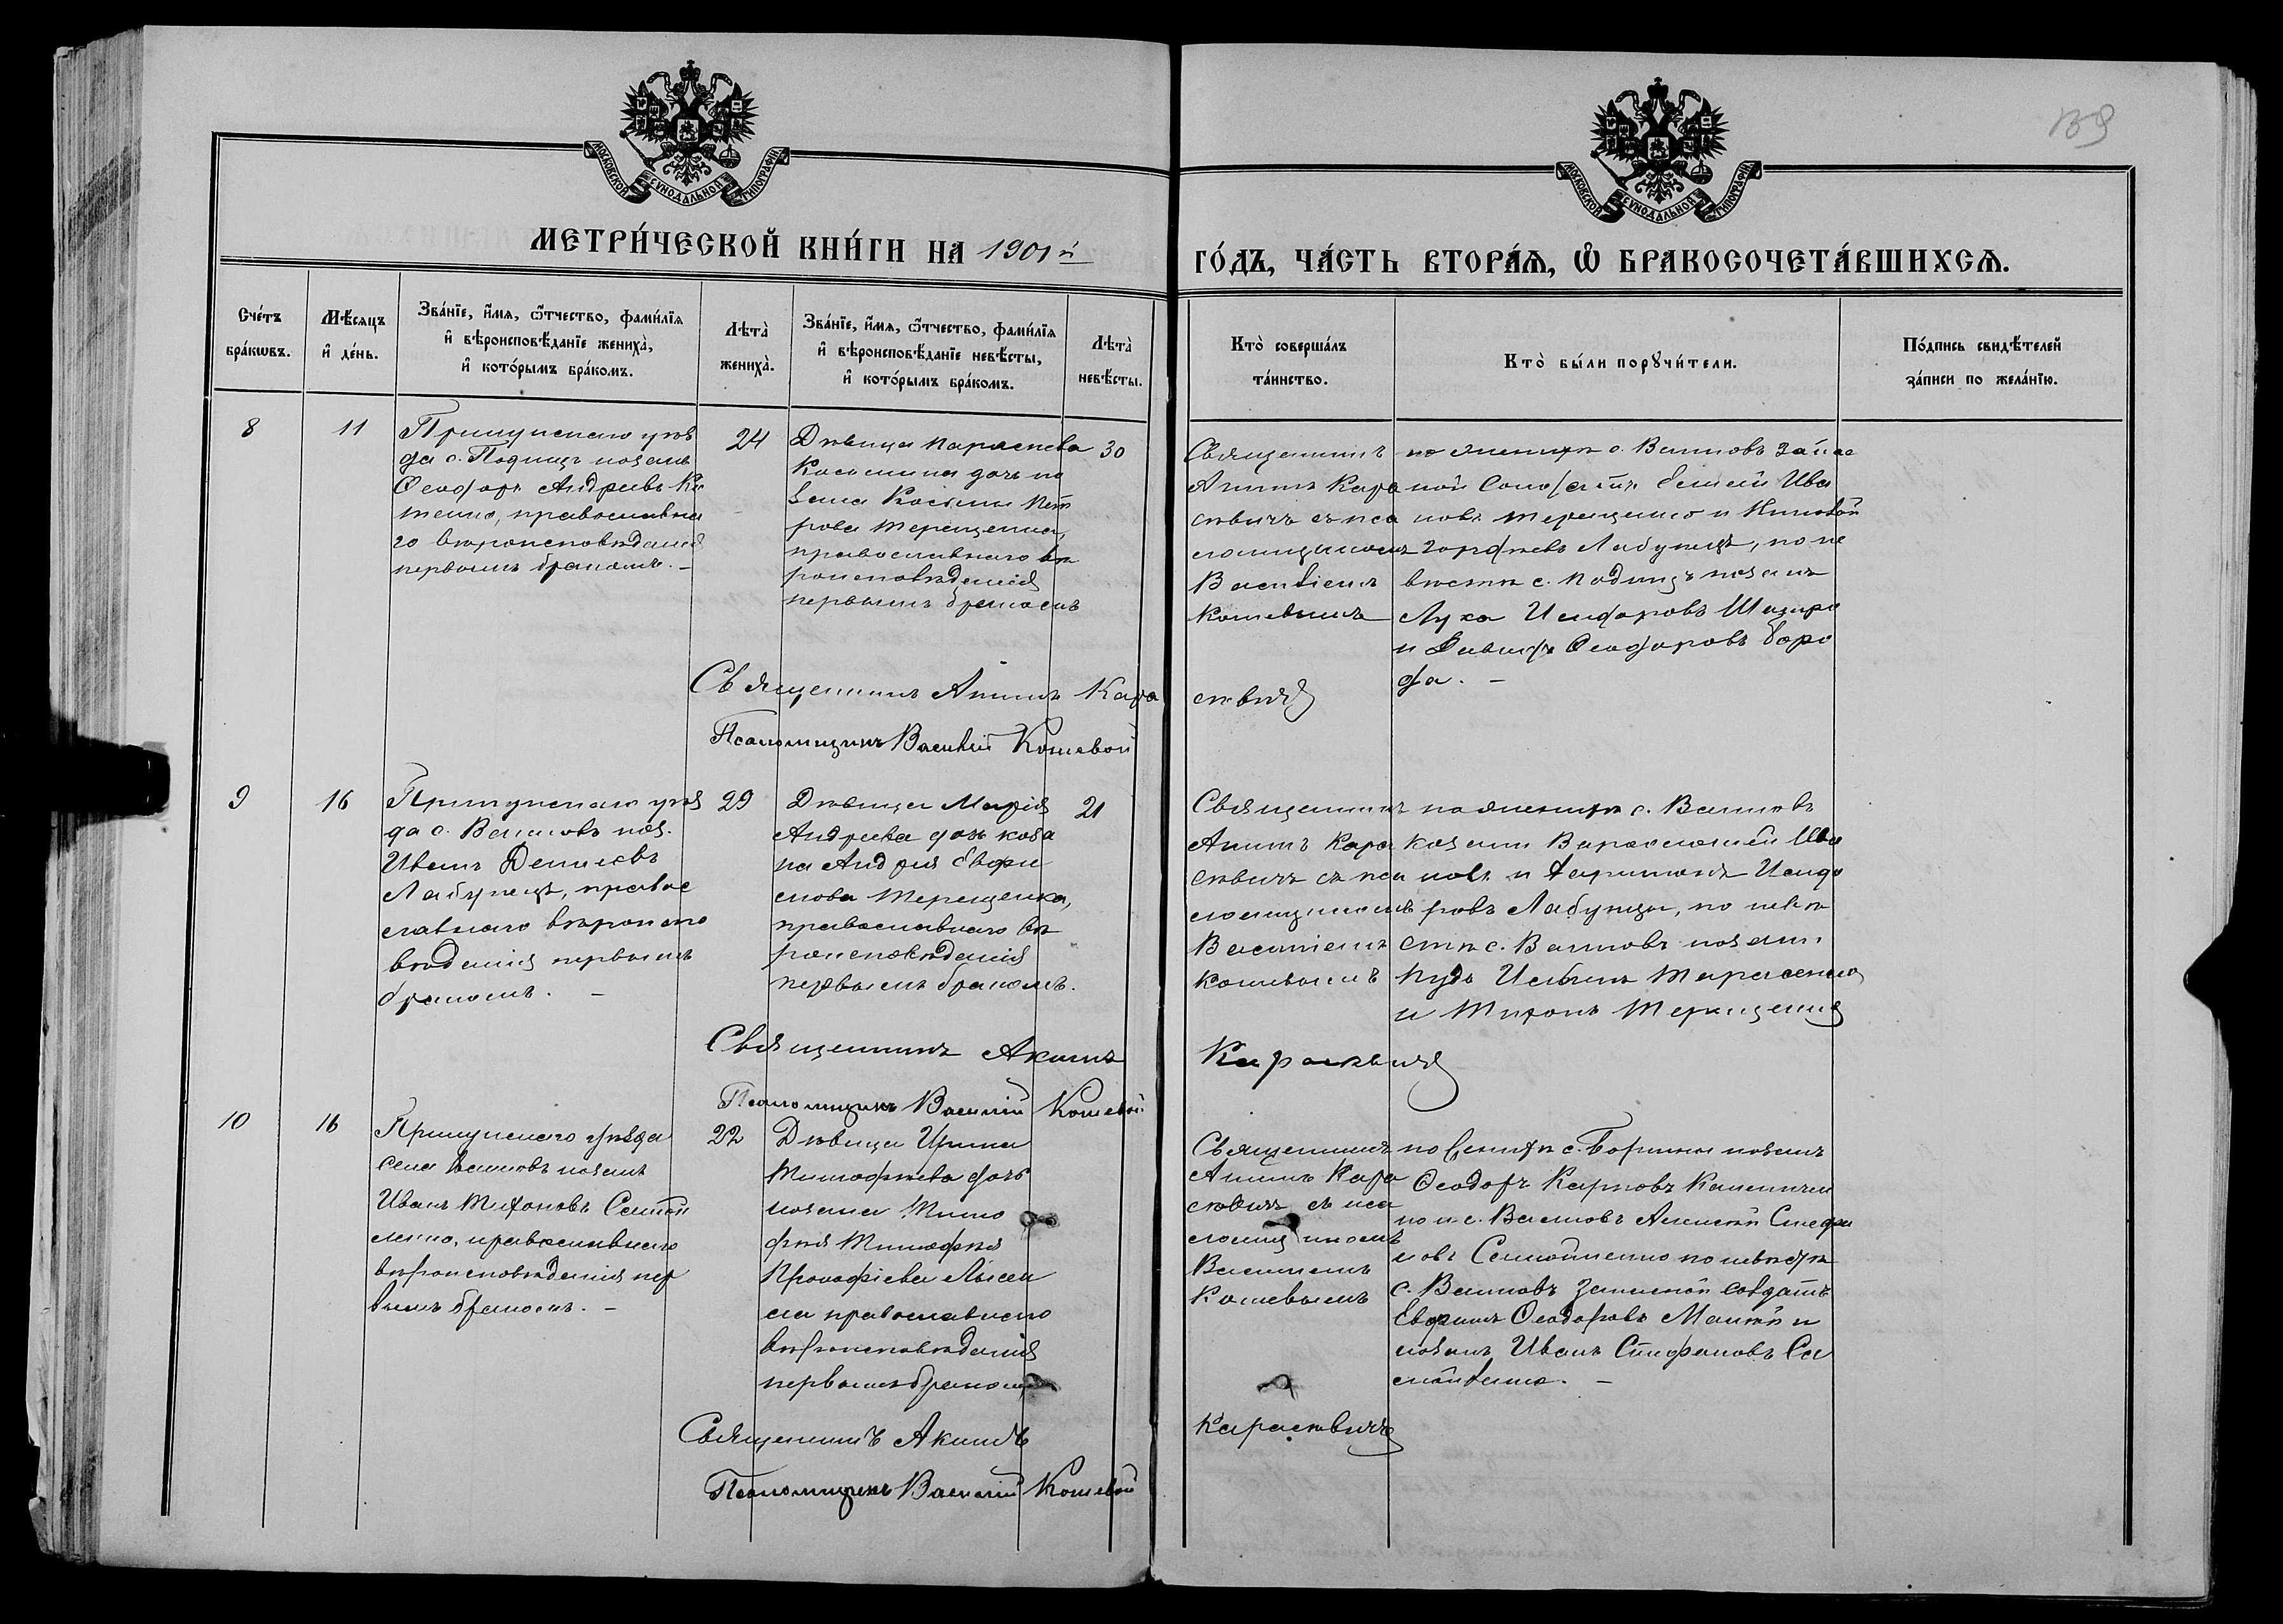 139
МОСКОВСКОЙ СѴНОДАЛЬНОЙ ТИПОГРАФІИ
МОСКОВСКОЙ СѴНОДАЛЬНОЙ ТИПОГРАФІИ
МЕТРИ́ЧЕСКОЙ КНИ́ГИ НА 1901й
ГО́ДЪ, ЧА́СТЬ ВТОРА́Ѧ, Ѡ҆ БРАКОСОЧЕТА́ВШИХСѦ.
Сче́тъ
бра́кѡвъ.
Мѣ́сяцъ
и҆ де́нь.
Зва́нїе, и҆́мѧ, ѻ҆́тчество, фами́лїѧ
и҆ вѣроисповѣ́данїе жениха̀,
и҆ кото́рымъ бра́комъ.
Лѣта̀
жениха̀.
Зва́нїе, и҆́мѧ, ѻ҆́тчество, фами́лїѧ
и҆ вѣроисповѣ́данїе невѣ́сты,
и҆ кото́рымъ бра́комъ.
Лѣта̀
невѣ́сты.
Кто̀ соверша́лъ
та́инство.
Кто̀ бы́ли порꙋчи́тели.
По́дпись свидѣ́телей
за́писи по жела́нїю.
8
11
Прилуцкаго уѣз
да с. Подищъ козакъ
Ѳеодоръ Андреевъ
православна
го вѣроисповѣданія
первымъ бракомъ. –
24
Дѣвица Параскева
Косьмина дочь ко
зака Косьмы Пет
рова Терещенка,
православнаго вѣ
роисповѣданія
первымъ бракомъ
30
Священникъ
Акимъ Кара
сѣвичъ съ пса
ломщикомъ
Василіемъ
Кошевымъ
по женихѣ с. Валковъ запас
ной Солдатъ Ива
новъ Терещенко и
Лабунецъ, по не
вѣстѣ с. Подищъ козаки
Лука Исидоровъ
и Давидъ Ѳеодоровъ Боро
да. –
Священникъ Акимъ Кара
сѣвичъ
Псаломщикъ Василій Кошевой
9
16
Прилуцкаго уѣз
да с. Валковъ коз.
Иванъ
Лабунецъ, правос
лавнаго вѣроиспо
вѣданія первымъ
бракомъ. –
29
Дѣвица Марія
Андреева дочь коза
ка Андрея Евфи
мова Терещенка,
православнаго вѣ
роисповѣданія
первымъ бракомъ.
21
Священникъ
Акимъ Кара
сѣвичъ съ пса
ломщикомъ
Василіемъ
Кошевымъ
по женихѣ с. Валковъ
козаки Варфоломей Ива
новъ и Харитонъ Исидо
ровъ Лабунцы, по невѣ
стѣ с. Валковъ козаки
Тарасенко
и Тихонъ Терещенко
Священникъ Акимъ
Карасѣвичъ
Псаломщикъ Василій Кошевой
10
16
Прилуцкаго уѣзда
села Валковъ козакъ
Иванъ Тихоновъ Самой
ленко, православнаго
вѣроисповѣданія пер
вымъ бракомъ. –
22
Дѣвица Ирина
Тимофѣева дочь
козака Тимо
фѣя Тимофѣя
Прокофіева Лысен
ка православнаго
вѣроисповѣданія
первымъ бракомъ
Священникъ
Акимъ Кара
сѣвичъ съ пса
ломщикомъ
Василіемъ
Кошевымъ
по женихѣ с. козакъ
Ѳеодоръ Карповъ
и с. Валковъ Алексѣй Стефа
новъ Самойленко по невѣстѣ
с. Валковъ запасной солдатъ
Евфимъ Ѳеодоровъ и
козакъ Иванъ Стефановъ Са
мойленко. –
Священникъ Акимъ
Карасѣвичъ
Псаломщикъ Василій Кошевой